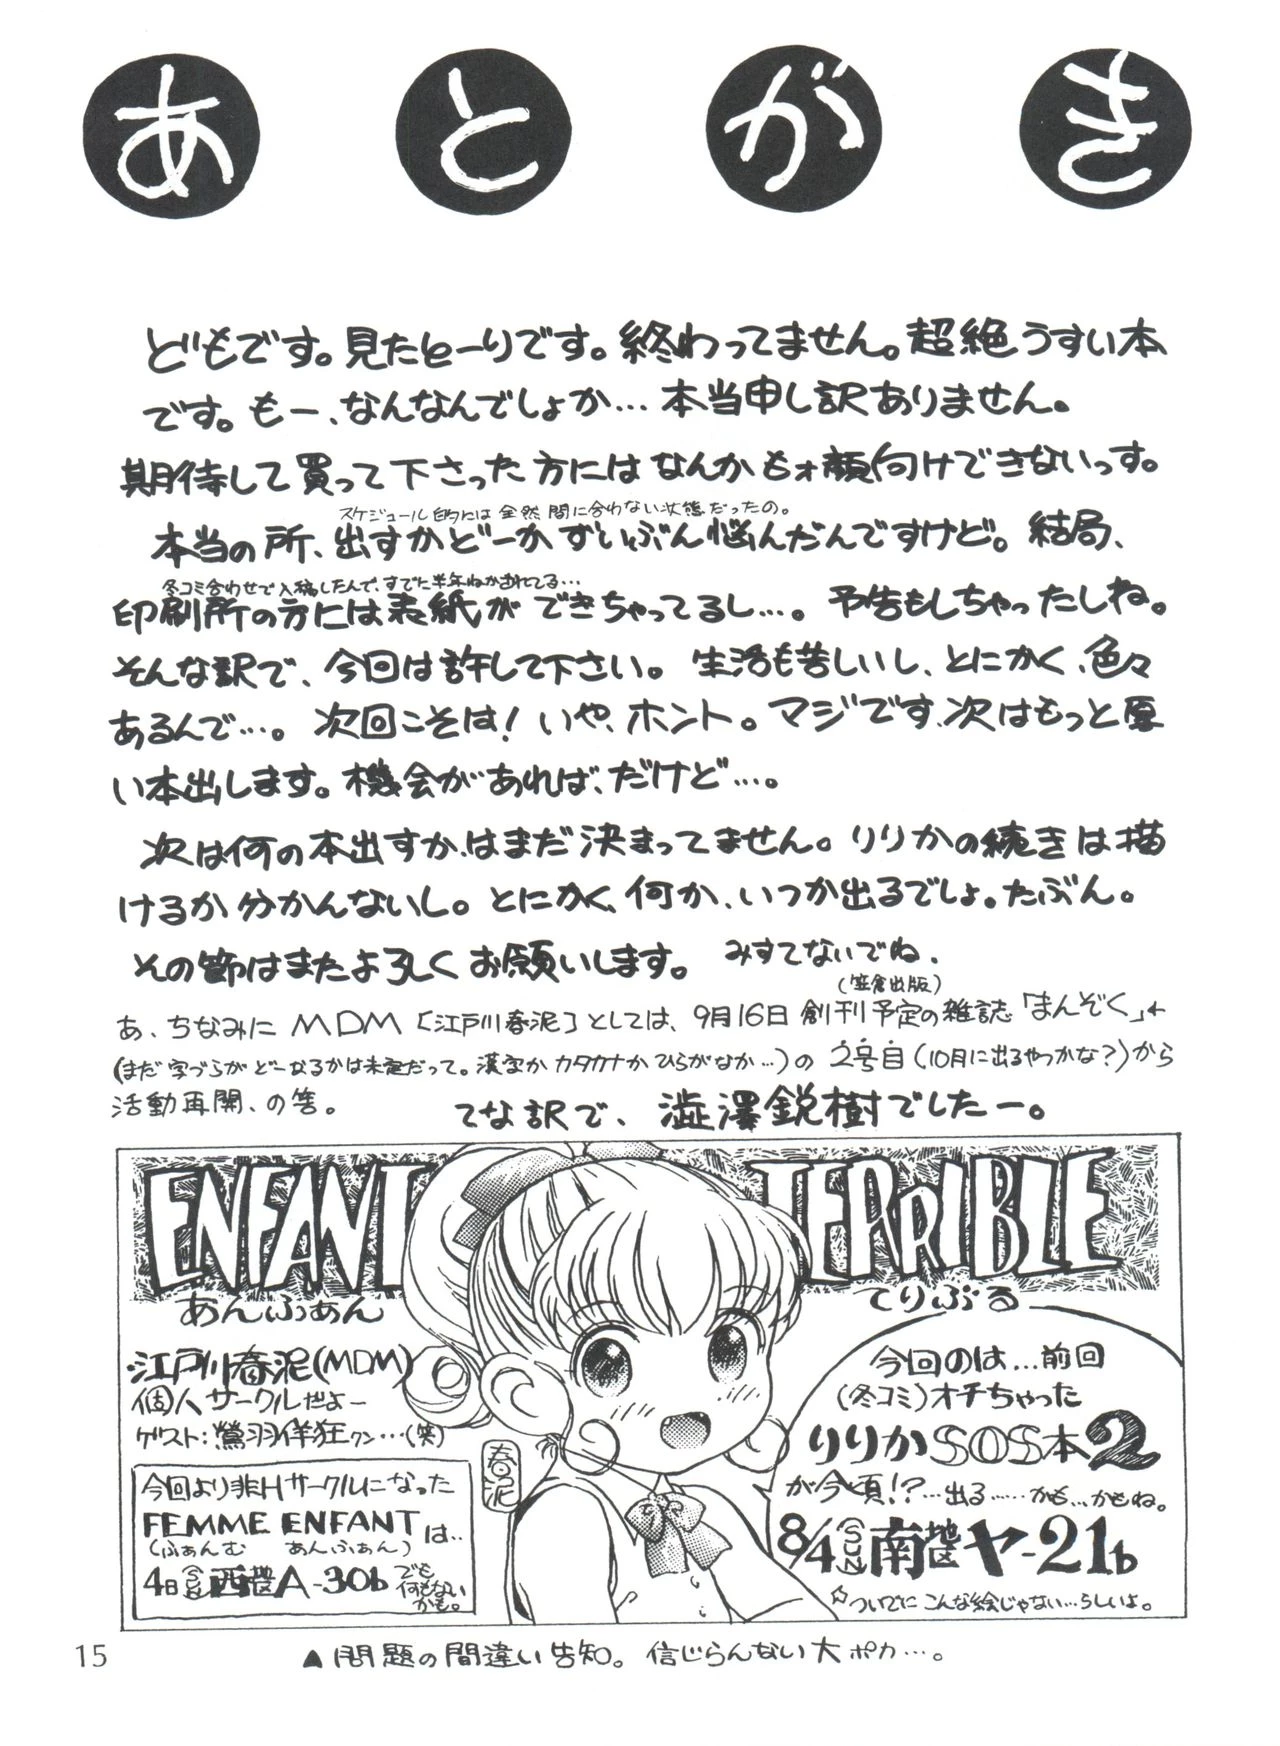 あとがき
どもです。見たとーりです。終わってません。超絶うすい本
です。もー、なんなんでしょか…本当申し訳ありません。
期待して買って下さった方にはなんかもォ顔向けできないっす。
スケジュール的には全然間に合わない状態だったの。
本当の所、出すかどーかずいぶん悩んだんですけど。結局、
冬コミ合わせで入稿したんで、すでに半年ねかされてる…
印刷所の方には表紙ができちゃってるし…。予告もしちゃったしね。
そんな訳で、今回は許して下さい。生活も苦しいし、とにかく、色々
あるんで…。次回こそは！いや、ホント。マジです、次はもっと厚
い本出します。機会があれば、だけど…。
次は何の本出すか、はまだ決まってません。りりかの続きは描
けるか分かんないし。とにかく、何か、いつか出るでしょ。たぶん。
その節はまたよろしくお願いします。みすてないでね、
(笠倉出版)
あ、ちなみにMDM[江戸川春泥]としては、9月16日創刊予定の雑誌「まんぞく」←
(まだ字づらがどーなるかは未定だって。漢字かカタカナかひらがなか…)の2号目(10月に出るやつかな？)から
活動再開、の筈。
てな訳で、澁澤鋭樹でしたー。
ENFANT TERRIBLE
あんふぁん てりぶる
江戸川春泥(MDM)
個人サークルだよー
ゲスト:鶯羽佯狂クン…(笑)
今回より非Hサークルになった
FEMME ENFANTは‥
(ふぁんむ あんふぁん)
4日(SUN)西地区A-30b でも何もないかも。
春泥
今回のは…前回
(冬コミ)オチちゃった
りりかSOS本2
が今頃!?…出る……かも…かもね。
8/4(SUN)南地区ヤ-21b
☆ついでにこんな絵じゃない…らしいよ。
15
▲問題の間違い告知。信じらんない大ポカ…。